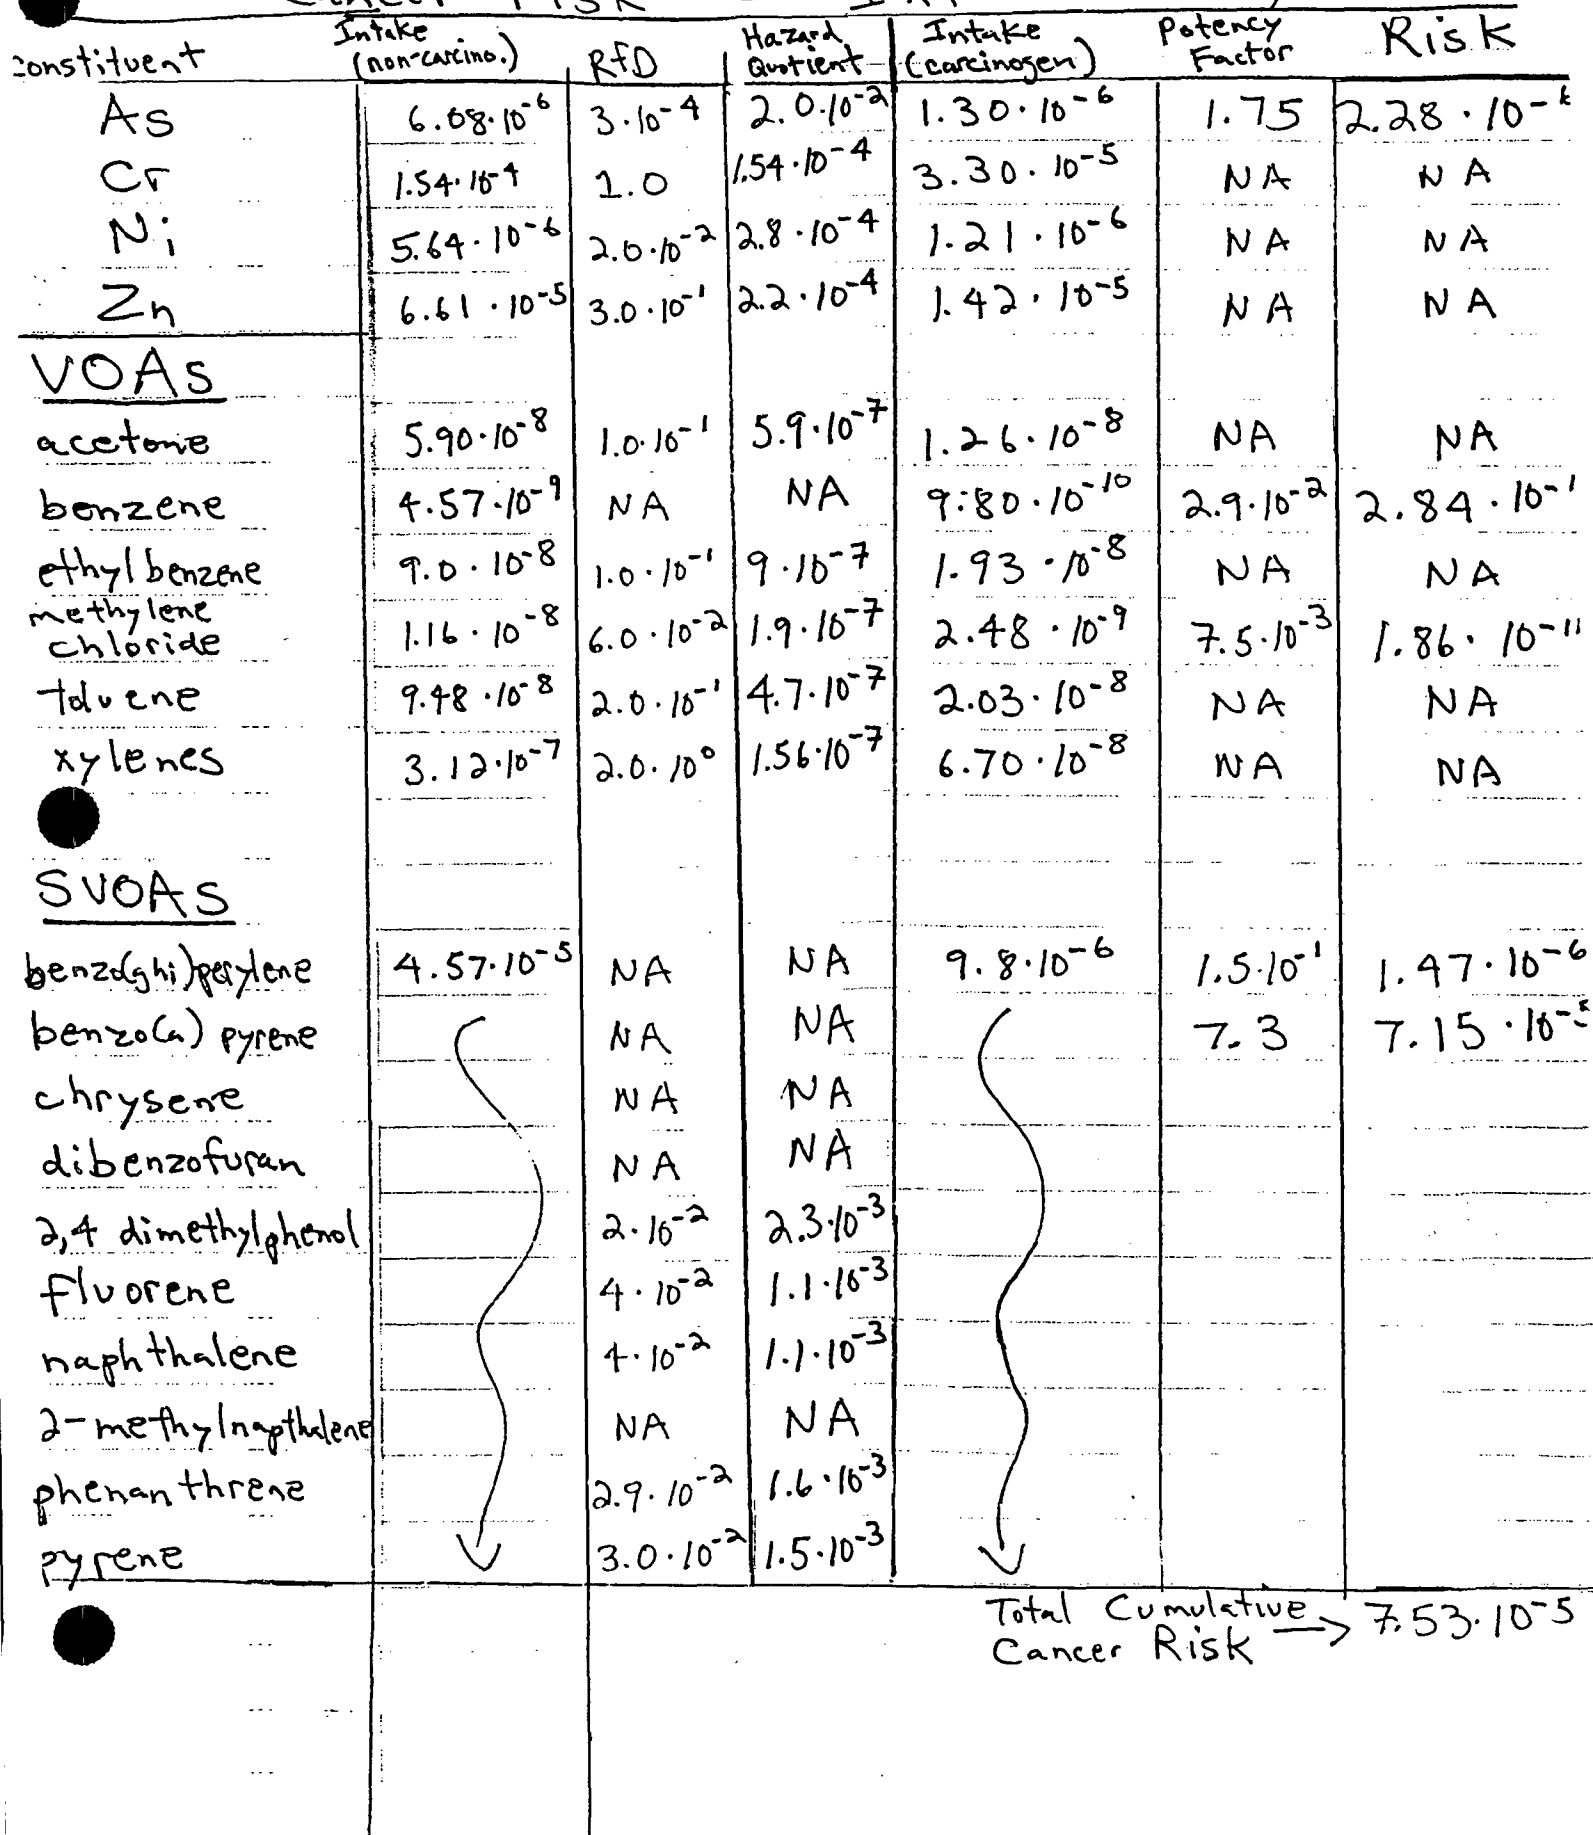 Cancer Risk
Constituent | Intake (non-carcino.) | RfD | Hazard Quotient | Intake (carcinogen) | Potency Factor | Risk
As | 6.08·10-6 | 3·10-4 | 2.0·10-2 | 1.30·10-6 | 1.75 | 2.28·10-
Cr | 1.54·10-4 | 1.0 | 1.54·10-4 | 3.30·10-5 | NA | NA
Ni | 5.64·10-6 | 2.0·10-2 | 2.8·10-4 | 1.21·10-6 | NA | NA
Zn | 6.61·10-5 | 3.0·10-1 | 2.2·10-4 | 1.42·10-5 | NA | NA
VOAs
acetone | 5.90·10-8 | 1.0·10-1 | 5.9·10-7 | 1.26·10-8 | NA | NA
benzene | 4.57·10-9 | NA | NA | 9.80·10-10 | 2.9·10-2 | 2.84·10-1
ethylbenzene | 9.0·10-8 | 1.0·10-1 | 9·10-7 | 1.93·10-8 | NA | NA
methylene chloride | 1.16·10-8 | 6.0·10-2 | 1.9·10-7 | 2.48·10-9 | 7.5·10-3 | 1.86·10-11
toluene | 9.48·10-8 | 2.0·10-1 | 4.7·10-7 | 2.03·10-8 | NA | NA
xylenes | 3.12·10-7 | 2.0·10⁰ | 1.56·10-7 | 6.70·10-8 | NA | NA
SVOAs
benzo(ghi)perylene | 4.57·10-5 | NA | NA | 9.8·10-6 | 1.5·10-1 | 1.47·10-6
benzo(a) pyrene | NA | NA | 7.3 | 7.15·10-
chrysene | NA | NA
dibenzofuran | NA | NA
2,4 dimethylphenol | 2·10-2 | 2.3·10-3
fluorene | 4·10-2 | 1.1·10-3
naphthalene | 4·10-2 | 1.1·10-3
2-methylnapthalene | NA | NA
phenanthrene | 2.9·10-2 | 1.6·10-3
pyrene | 3.0·10-2 | 1.5·10-3
Total Cumulative Cancer Risk → 7.53·10-5